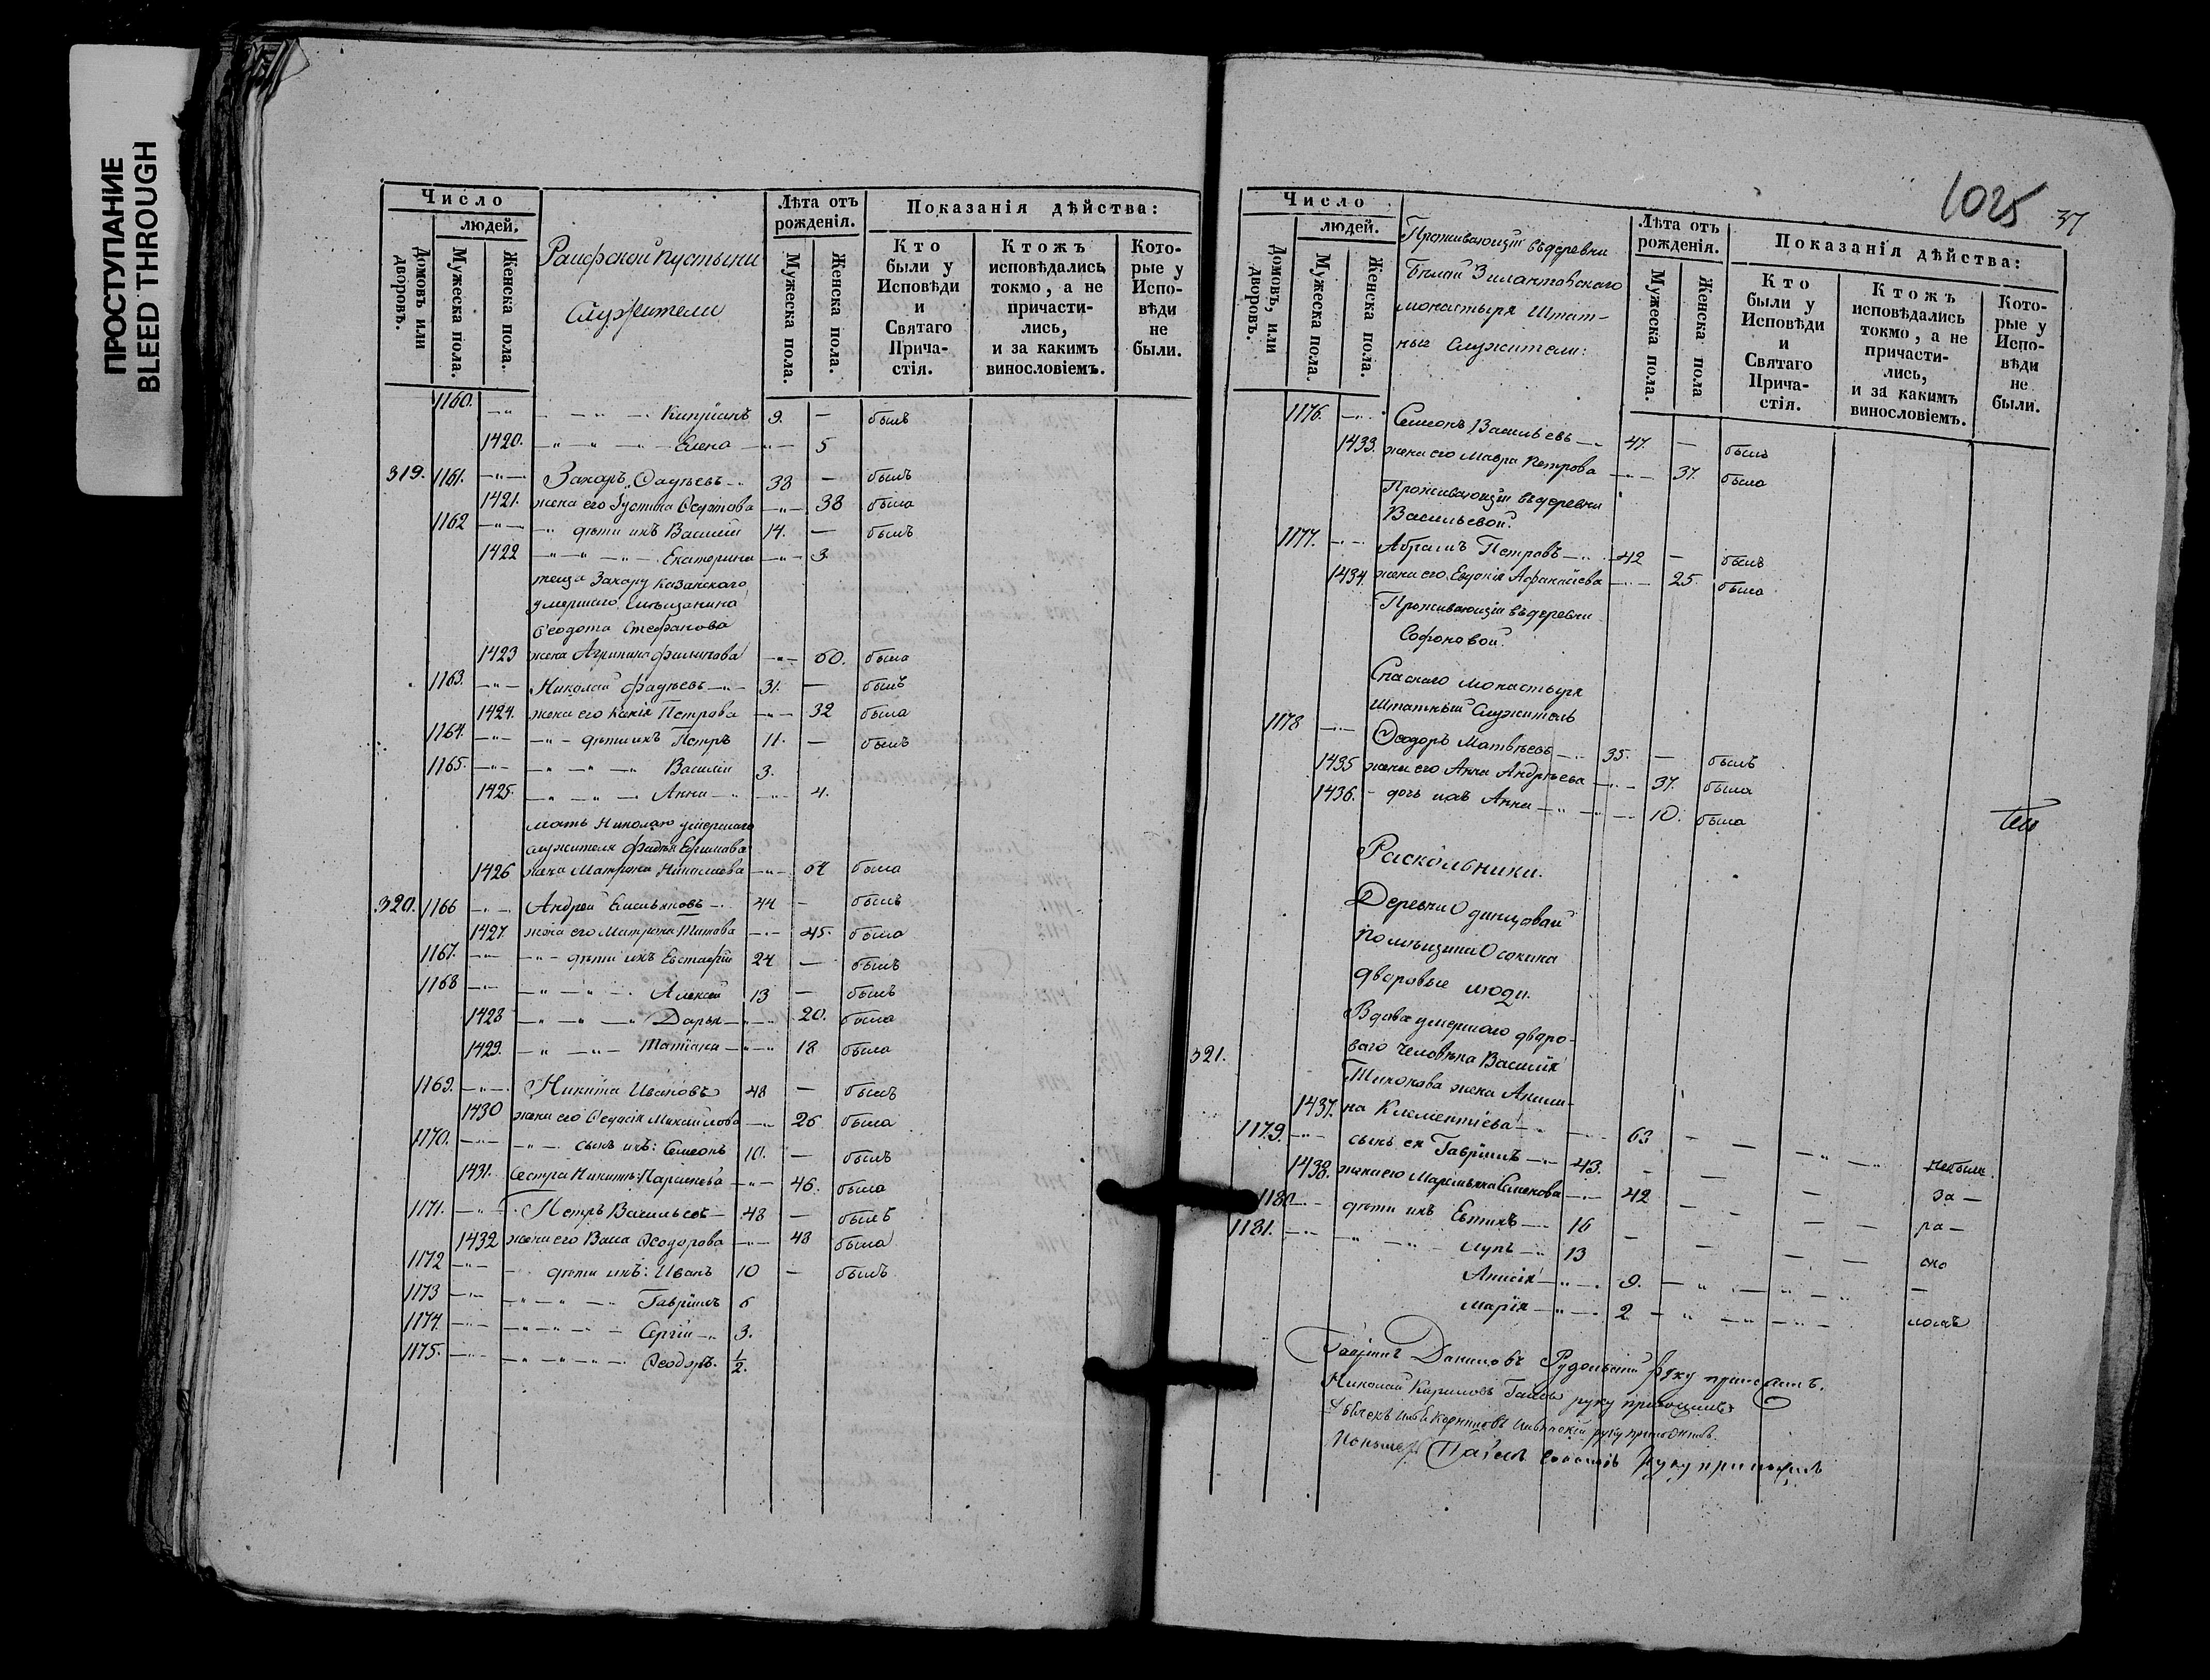 ПРОСТУПАНИЕ
BLEED THROUGH
Число
людей.
Домовъ или дворовъ.
Мужеска пола.
Женска пола.
Раифской пустыни
служители
Лѣта отъ рожденія.
Мужеска пола.
Женска пола.
Показанія дѣйства:
Кто были у Исповѣди и Святаго Прича-стія.
Ктожъ исповѣдались токмо, а не причасти-лись, и за какимъ винословіемъ.
Кото-рые у Испо-вѣди не были.
1160. —„— — „ — Кипріанъ 9. — былъ
1420. — „ — „ — Елена —„— 5
319. 1161. —„— Захаръ Фадѣевъ 38 — былъ
1421. жена его Іустина —„— 38 была
1162 —„— „ дѣти ихъ Василій 14. — былъ
1422 — „ — „ — Екатерина —„— 3
теща Захару Казанского
умершаго мѣщанина
Ѳеодота Стефанова
1423 жена Агрипина Филипова —„— 60. была
1163. —„— Николай Фадѣевъ —„— 31. — былъ
1424. жена его Ксенія Петрова —„— 32 была
1164. —„— —„— дѣти ихъ Петръ 11. — былъ
1165. —„— — „ — „ — Василій 3.
1425. — „ — „ — Анна —„— 4.
мать Николаю умершаго
служителя Фадѣя Ефимова
1426 жена Матрона Николаева —„— 64 была
320. 1166 —„— Андрей Емельяновъ —„ 44 — былъ
1427. жена его Матрона Титова —„— 45. была
1167. —„— —„— дѣти ихъ Евстафій 24 — былъ
1168 —„— — „ — „ — Алексѣй 13 — былъ
1428 — „ — „ — Дарья —„— 20. была
1429. — „ — „ — Татіана —„— 18 была
1169. —„— Никита Ивановъ 48 — былъ
1430 жена его Ѳедосія Михайлова —„— 26 была
1170. —„— —„— сынъ ихъ: Семеонъ 10. — былъ
1431. Сестра Никиты: —„— 46. была
1171. —„— Петръ Васильевъ 48 — былъ
1432 жена его Васса Ѳеодорова —„— 48 была
1172 —„— дѣти ихъ: Иванъ 10 — былъ
1173 —„— — „ — „ — Гавріилъ 6
1174. —„— — „ — „ — Сергій —„ 3.
1175. —„— — „ — „ — Ѳеодоръ. 1/2.
1025 37
Число
людей.
Домовъ, или дворовъ.
Мужеска пола.
Женска пола.
Проживающіи въ деревни
Бѣлой Зилантовскаго
монастыря Штат-
ные служители:
Лѣта отъ рожденія.
Мужеска пола.
Женска пола
Показанія дѣйства:
Кто были у Исповѣди и Святаго Прича-стія.
Ктожъ исповѣдались токмо, а не причасти-лись, и за какимъ винословіемъ.
Кото-рые у Испо-вѣди не были.
1176. —„— Семеонъ Васильевъ —„— 47. — былъ
1433. жена его Мавра Петрова —„— 37. была
Проживающіи въ деревни
Васильевой.
1177. —„— Абрамъ Петровъ —„— 42 — былъ
1434. жена его Евдокія Афанасіева —„— 25. была
Проживающіи въ деревни
Софоновой.
Спаскаго монастыря
Штатный Служитель
1178 —„— Ѳеодоръ Матвѣевъ —„— 35. — былъ
1435 жена его Анна Андрѣева —„— 37. была
1436. — дочь ихъ Анна —„— 10. была
Раскольники.
Деревни Одинцовой
помѣщика Осокина
дворовые люди.
Вдова умершаго дворо-
321. ваго человѣка Василія
Тихонова жена Аниси-
1437. на Клементіева —„— 63 — небыли
1179. —„— сынъ ея Гавріилъ —„— 43. —
1438. жена его Семенова —„— 42 — за—
1180 —„— дѣти ихъ Евтихъ —„— 16 — ра—
1181. —„— — „ — Лупъ —„ 13 — ско
Анисія —„— 9. —
Марія —„— 2 — ломъ
Гавріилъ Даниловъ Рудольскій руку приложилъ.
Николай Кариловъ руку приложилъ
руку приложилъ.
Павелъ руку приложилъ